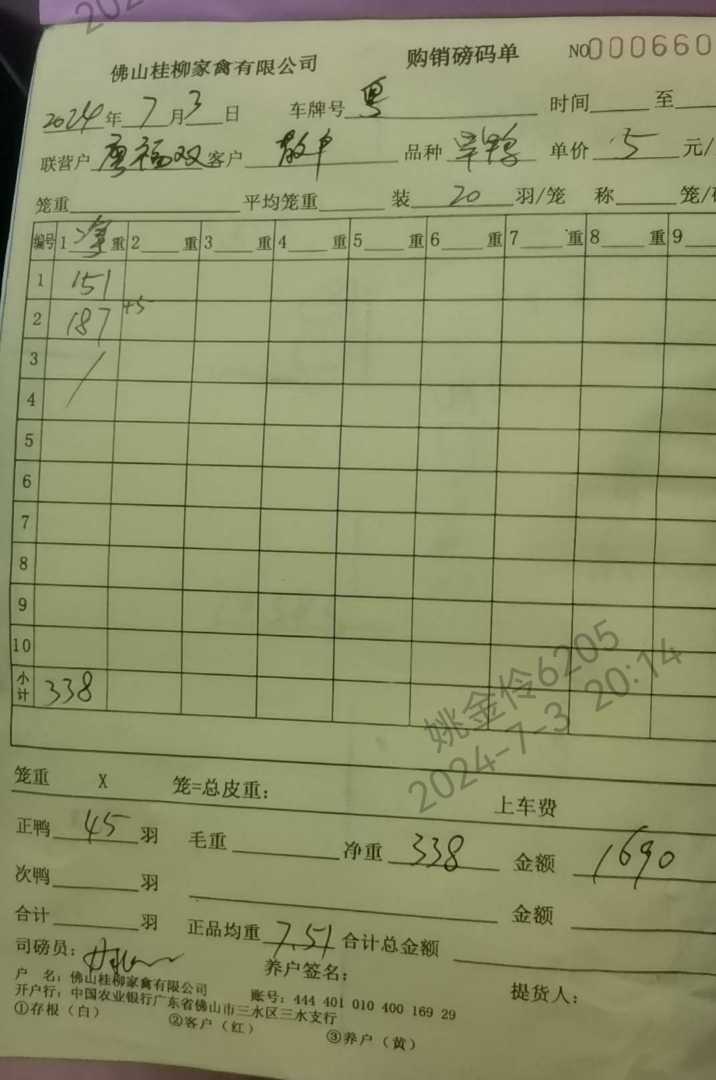 佛山桂柳家禽有限公司 购销磅码单 NO000660
2024年7月3日 车牌号 粤 时间 至
联营户 唐福双 客户 散户 品种 单价 5 元/
笼重 平均笼重 装 20 羽/笼 称 笼/
编号 1 净重 2 重 3 重 4 重 5 重 6 重 7 重 8 重 9
1 151
2 187 +5
3
4
5
6
7
8
9
10
小计 338
姚金伶6205
2024-7-3 20:14
笼重 X 笼=总皮重: 上车费
正鸭 45 羽 毛重 净重 338 金额 1690
次鸭 羽 金额
合计 羽 正品均重 7.51 合计总金额
司磅员: 养户签名: 提货人:
户 名: 佛山桂柳家禽有限公司 账号: 444 401 010 400 169 29
开户行: 中国农业银行广东省佛山市三水区三水支行
①存根(白) ②客户(红) ③养户(黄)